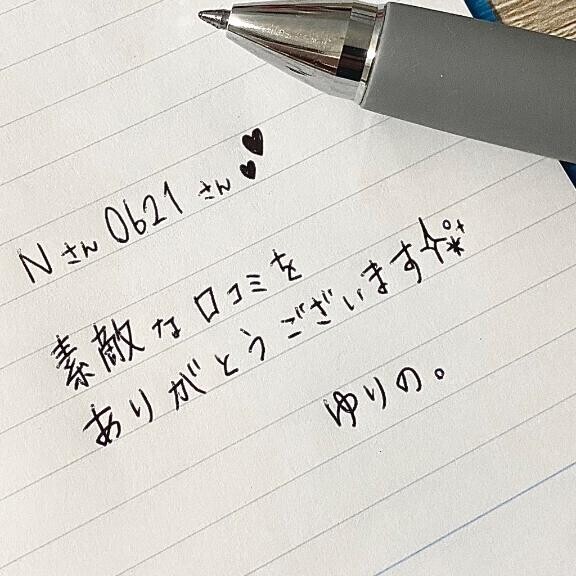 Nさん 0621さん♥♥
素敵な口コミを
ありがとうございます
ゆりの。